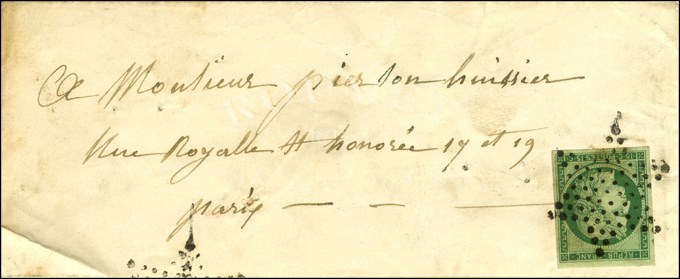 A Monsieur pierson huissier
Rue Royalle St honorée 17 et 19
paris
REPUB FRANC